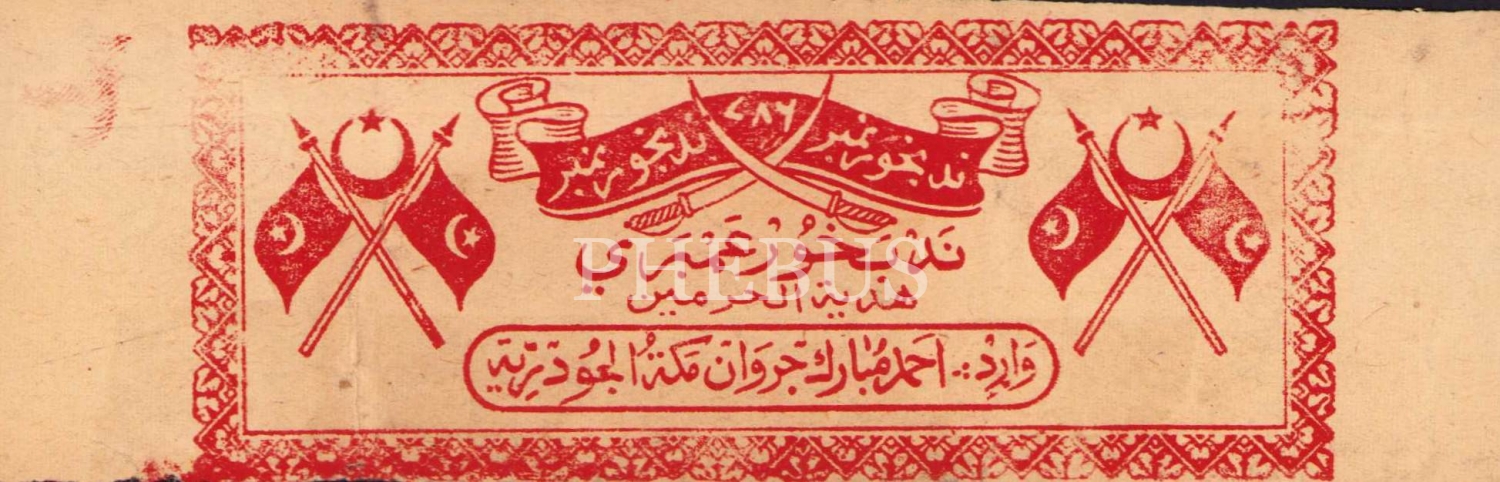 ند بخور نمبر ٧٨٦ ند بخور نمبر
نَد بخُور عَمْبَري
PHEBUS
هدية الحرمين
وَارِدْ :. احمد مُبارك جروان مكةُ الجودرية